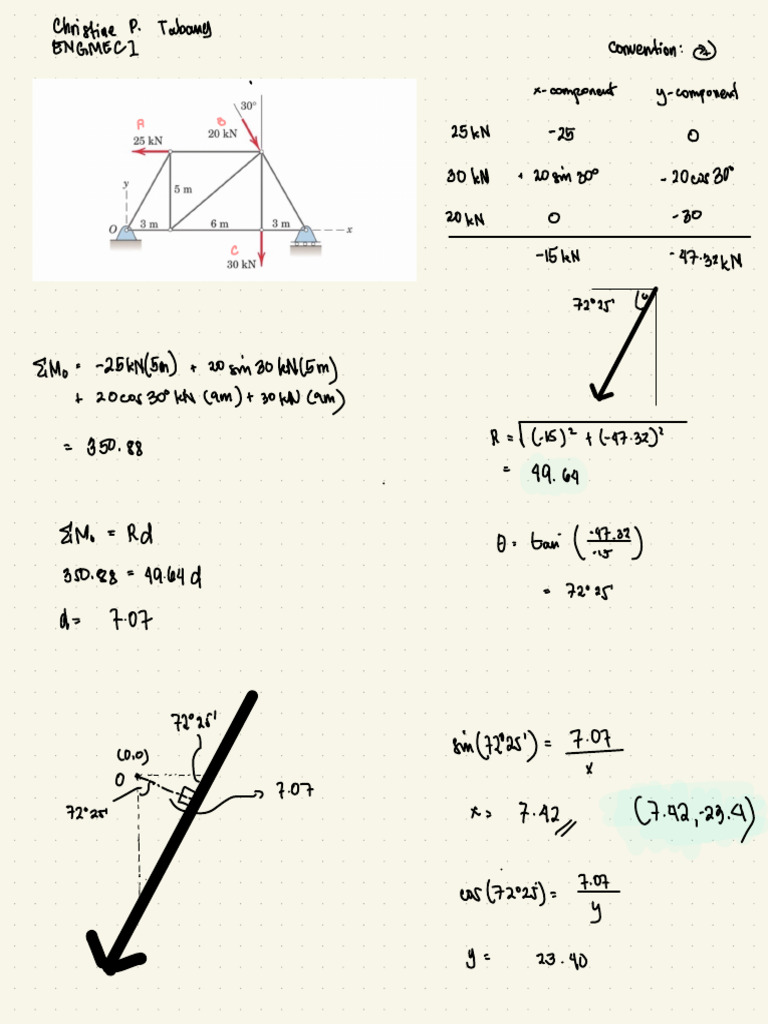 Christine P. Tabang
ENGMEC1
Convention:
x-component y-component
25 kN -25 0
30 kN + 20 sin 30° - 20 cos 30°
20 kN 0 -30
-15 kN -47.32 kN
A
25 kN
B
20 kN
30°
y
5 m
O
3 m
6 m
3 m
x
C
30 kN
72°25'
ΣM₀ = -25 kN(5m) + 20 sin 30 kN(5m)
+ 20 cos 30° kN (9m) + 30 kN (9m)
= 350.88
R = √(-15)² + (-47.32)²
= 49.64
ΣM₀ = Rd
350.88 = 49.64 d
d = 7.07
θ = tan⁻ (-47.32/-15)
= 72°25'
72°25'
(0,0)
O
72°25'
7.07
sin(72°25') = 7.07/x
x = 7.42
(7.42, -23.4)
cos(72°25') = 7.07/y
y = 23.40